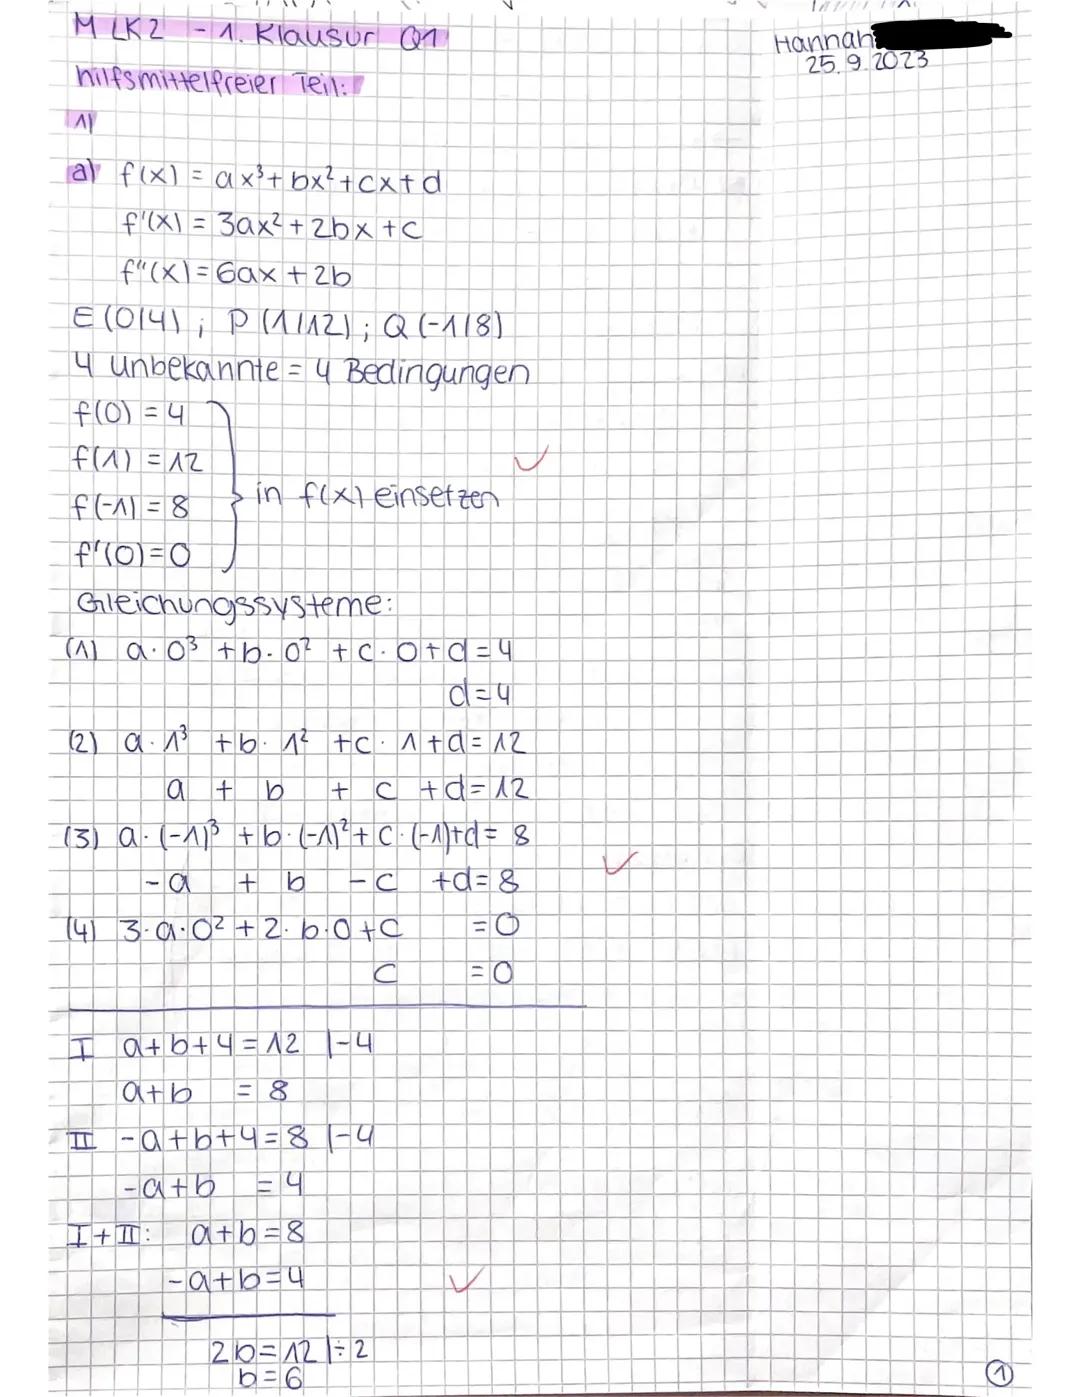 M LK2 - 1. Klausur Q1
Hannah
25.9.2023
hilfsmittelfreier Teil:
1)
a) f(x) = ax³+bx²+cx+d
f'(x) = 3ax²+2bx+c
f"(x)=6ax+2b
E(0|4); P(1|12); Q(-1|8)
4 Unbekannte = 4 Bedingungen
f(0) = 4
f(1) = 12
f(-1) = 8
in f(x) einsetzen
f'(0)=0
Gleichungssysteme:
(1) a·0³ +b·0² +c·0+d=4
d=4
(2) a·1³ +b·1² +c·1+d=12
a + b + c +d=12
(3) a·(-1)³ +b·(-1)²+c·(-1)+d= 8
-a + b -c +d=8
(4) 3·a·0²+2·b·0+c =0
c =0
I a+b+4=12 |-4
a+b = 8
II -a+b+4=8 |-4
-a+b = 4
I+II: a+b=8
-a+b=4
2b=12 |÷2
b=6
1